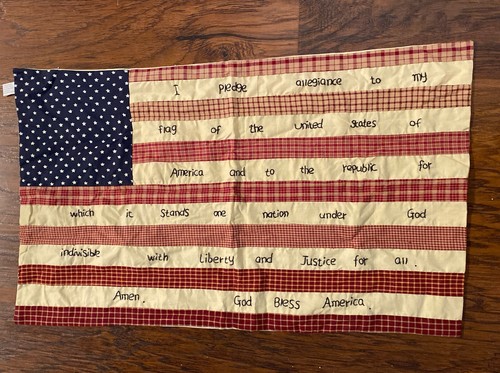 I pledge allegiance to my
flag of the united states of
America and to the republic for
which it stands one nation under God
indivisible with Liberty and Justice for all.
Amen. God Bless America.